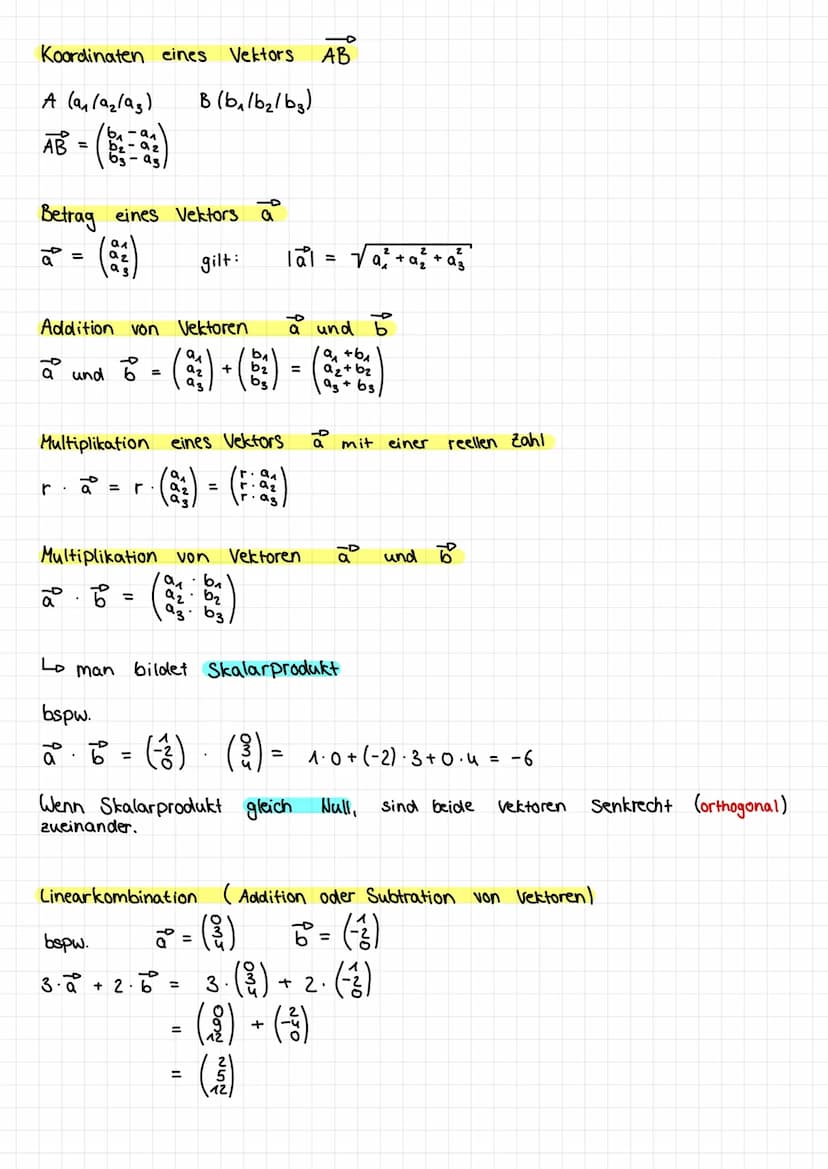 Koordinaten eines Vektors $\overrightarrow{AB}$
A (a₁/a₂/a₃) B (b₁/b₂/b₃)
$\overrightarrow{AB} = \begin{pmatrix} b_1 - a_1 \\ b_2 - a_2 \\ b_3 - a_3 \end{pmatrix}$
Betrag eines Vektors $\vec{a}$
$\vec{a} = \begin{pmatrix} a_1 \\ a_2 \\ a_3 \end{pmatrix}$ gilt: $|\vec{a}| = \sqrt{a_1^2 + a_2^2 + a_3^2}$
Addition von Vektoren $\vec{a}$ und $\vec{b}$
$\vec{a}$ und $\vec{b} = \begin{pmatrix} a_1 \\ a_2 \\ a_3 \end{pmatrix} + \begin{pmatrix} b_1 \\ b_2 \\ b_3 \end{pmatrix} = \begin{pmatrix} a_1 + b_1 \\ a_2 + b_2 \\ a_3 + b_3 \end{pmatrix}$
Multiplikation eines Vektors $\vec{a}$ mit einer reellen Zahl
$r \cdot \vec{a} = r \cdot \begin{pmatrix} a_1 \\ a_2 \\ a_3 \end{pmatrix} = \begin{pmatrix} r \cdot a_1 \\ r \cdot a_2 \\ r \cdot a_3 \end{pmatrix}$
Multiplikation von Vektoren $\vec{a}$ und $\vec{b}$
$\vec{a} \cdot \vec{b} = \begin{pmatrix} a_1 \cdot b_1 \\ a_2 \cdot b_2 \\ a_3 \cdot b_3 \end{pmatrix}$
↳ man bildet Skalarprodukt
bspw.
$\vec{a} \cdot \vec{b} = \begin{pmatrix} 1 \\ -2 \\ 0 \end{pmatrix} \cdot \begin{pmatrix} 0 \\ 3 \\ 4 \end{pmatrix} = 1 \cdot 0 + (-2) \cdot 3 + 0 \cdot 4 = -6$
Wenn Skalarprodukt gleich Null, sind beide Vektoren senkrecht (orthogonal)
zueinander.
Linearkombination (Addition oder Subtration von Vektoren)
bspw. $\vec{a} = \begin{pmatrix} 0 \\ 3 \\ 4 \end{pmatrix}$ $\vec{b} = \begin{pmatrix} 1 \\ -2 \\ 0 \end{pmatrix}$
$3 \cdot \vec{a} + 2 \cdot \vec{b} = 3 \cdot \begin{pmatrix} 0 \\ 3 \\ 4 \end{pmatrix} + 2 \cdot \begin{pmatrix} 1 \\ -2 \\ 0 \end{pmatrix}$
$= \begin{pmatrix} 0 \\ 9 \\ 12 \end{pmatrix} + \begin{pmatrix} 2 \\ -4 \\ 0 \end{pmatrix}$
$= \begin{pmatrix} 2 \\ 5 \\ 12 \end{pmatrix}$